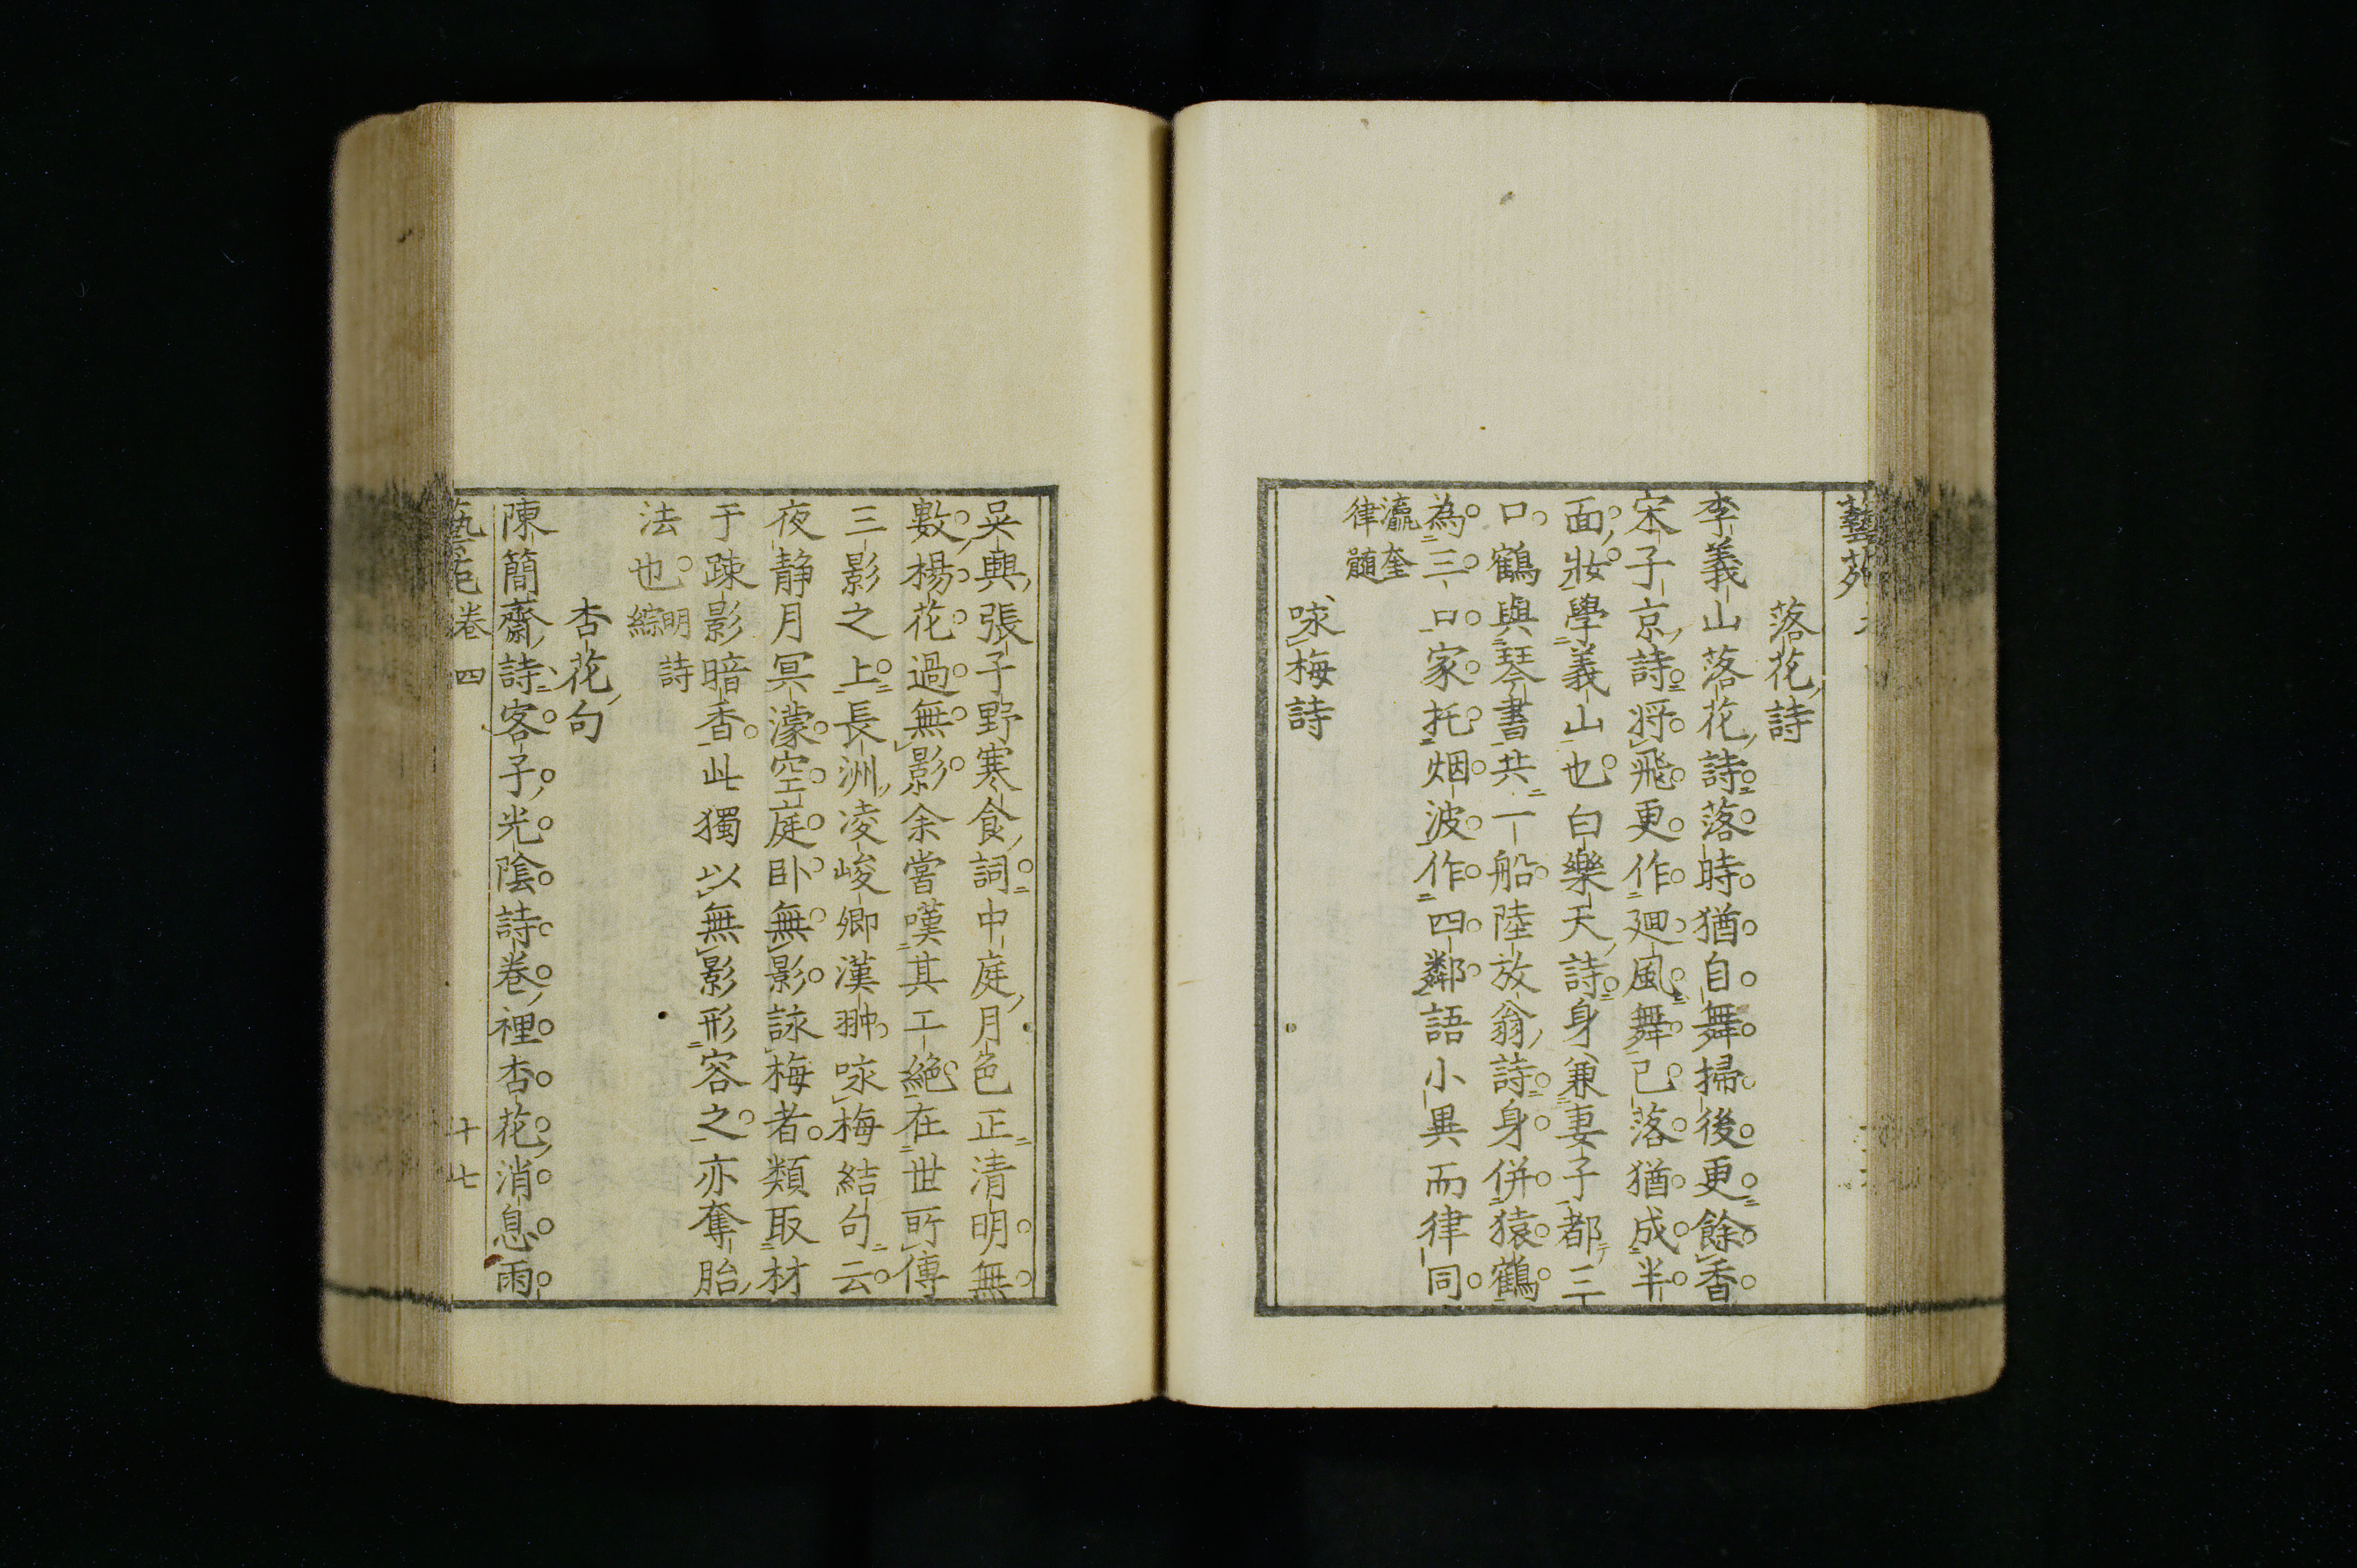 藝苑
落花詩
李義山落花詩落時猶自舞掃後更餘香
宋子京詩將飛更作廻風舞已落猶成半
面妝學義山也白樂天詩身兼妻子都三
口鶴與琴書共一船陸放翁詩身併猿鶴
為三口家托烟波作四鄰語小異而律同
瀛奎
律髓
咏梅詩
吳興張子野寒食詞中庭月色正清明無
數楊花過無影余嘗嘆其工絶在世所傳
三影之上長洲凌峻卿漢翀咏梅結句云
夜静月冥濛空庭卧無影詠梅者類取材
于疎影暗香此獨以無影形容之亦奪胎
法也
明詩
綜
杏花句
陳簡齋詩客子光陰詩卷裡杏花消息雨
藝苑卷四 十七